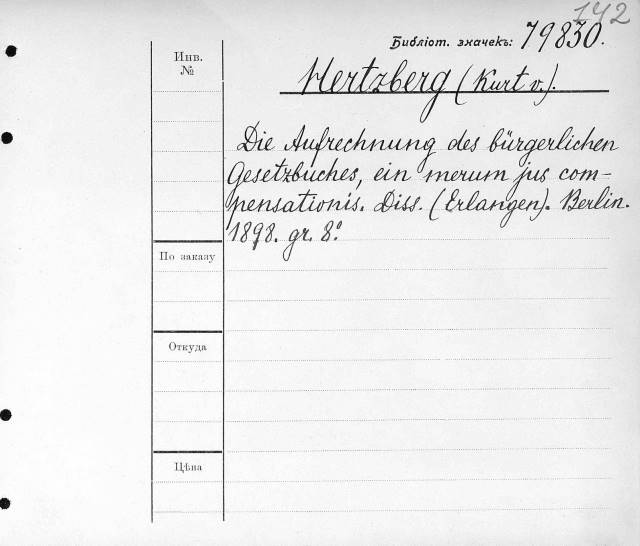 142
Библіот. значекъ: 79830.
Инв.
№
Hertzberg (Kurt v.).
Die Aufrechnung des bürgerlichen
Gesetzbuches, ein merum jus com-
pensationis. Diss. (Erlangen). Berlin.
1898. gr. 8.º
По заказу
Откуда
Цѣна